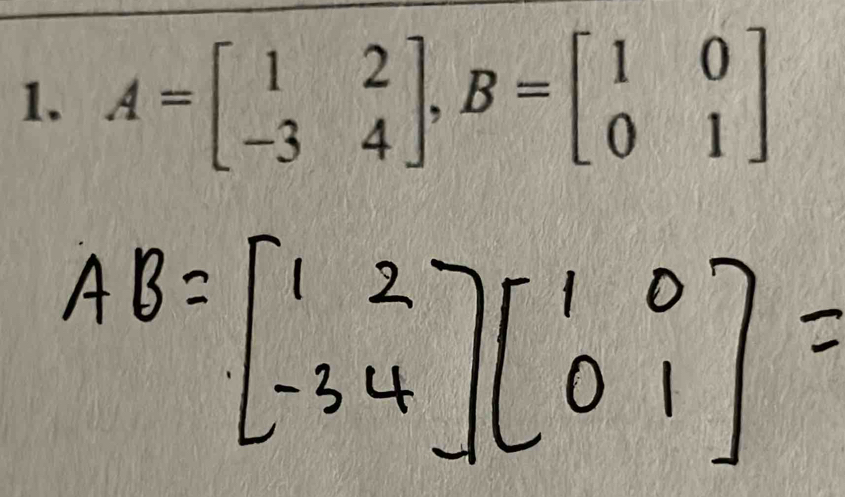 1. A = [1 2; -3 4], B = [1 0; 0 1]
AB = [1 2; -3 4][1 0; 0 1] =